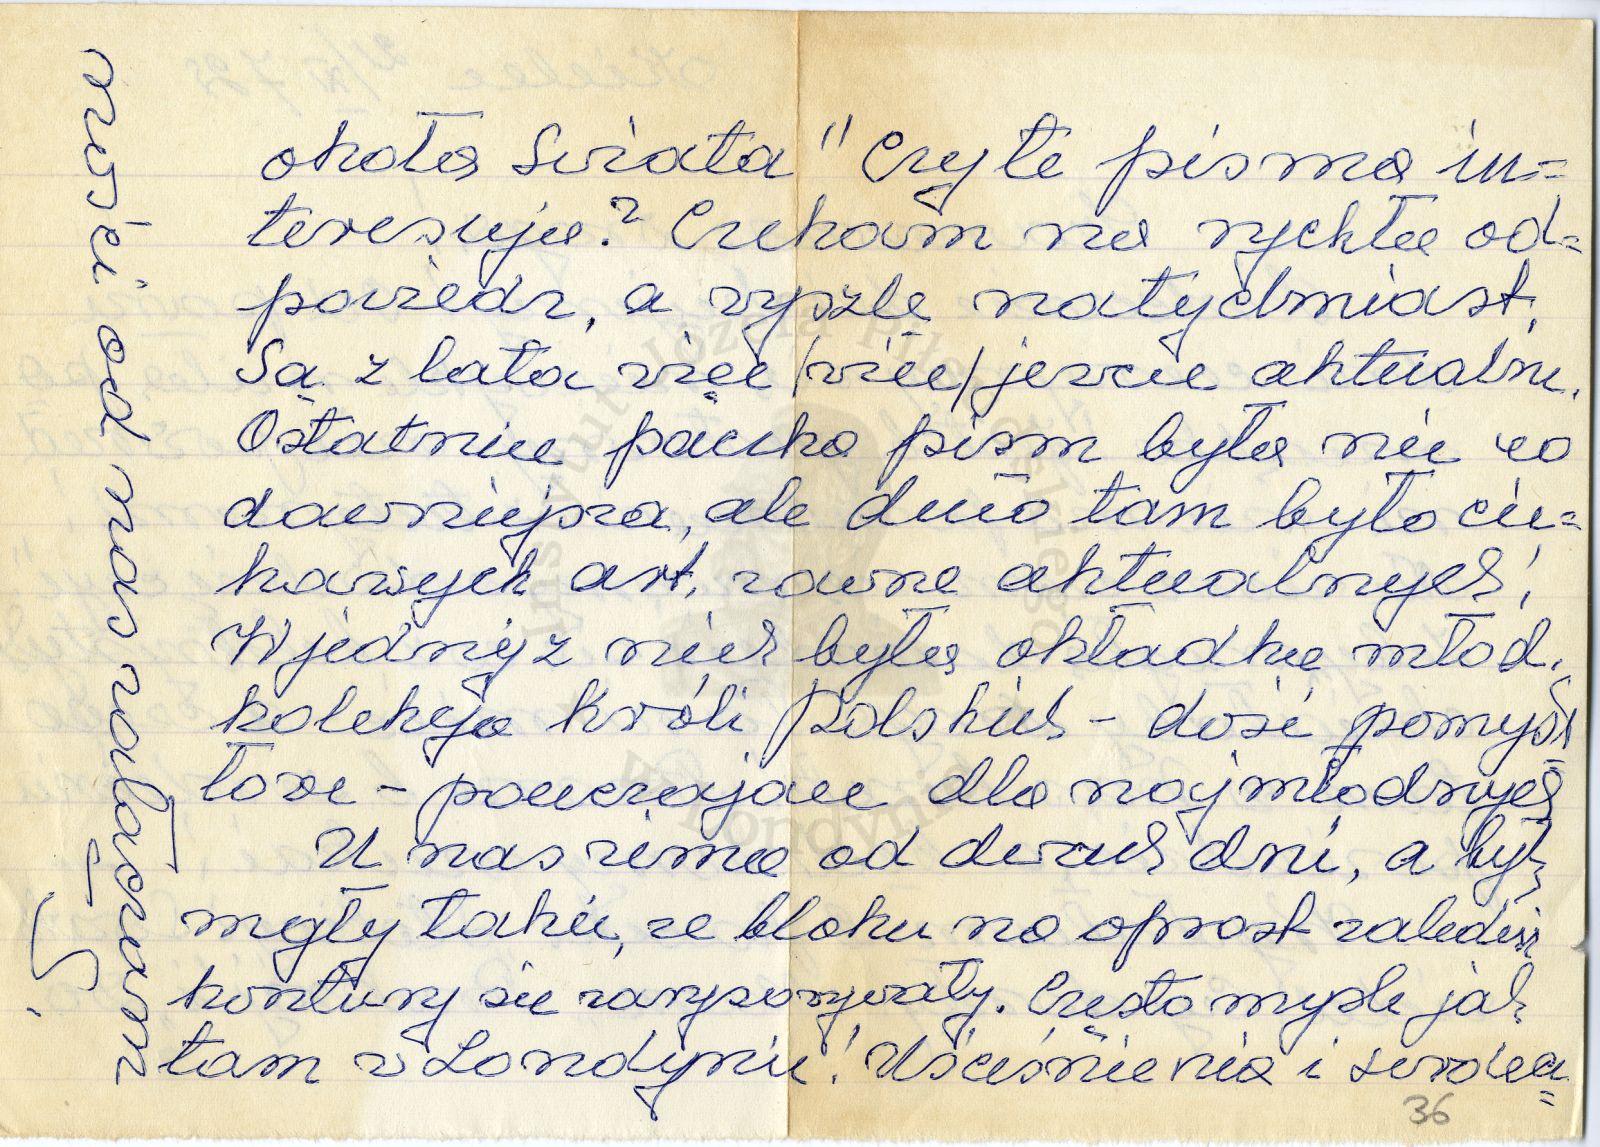 około świata" Czy te pisma in=
teresują? Czekam na rychłą od=
powiedź, a wyszlę natychmiast.
Są z lata więc /więc/ jeszcze aktualne.
Ostatnia paczka pism była nie co
dawniejsza, ale dużo tam było cie=
kawych art, zawsze aktualnych!
W jednej z nich była okładka młod.
kolekcja Króli Polskich - dość pomys=
łowe - pouczające dla najmłodszych
U nas zima od dwuch dni, a były
mgły takie, że bloku na oprost zaledwie
kontury się zarysowywały. Często myślę jak
tam w Londynie! Uściśnienia i serdecz=
ności od nas załączam
36
Instytut Józefa Piłsudskiego
w Londynie